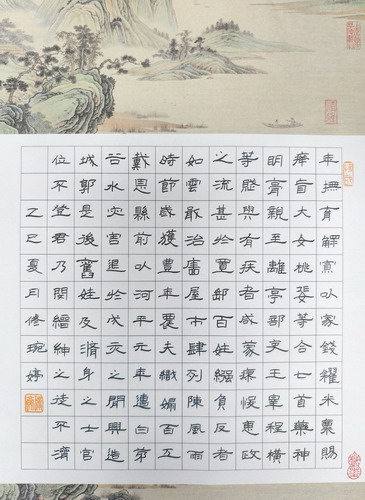 年撫育鰥寡以家錢糴米粟賜
癃盲大女桃婓等合七首藥神
明膏親至離亭部吏王宰程橫
等賦與有疾者咸蒙瘳悛惠政
之流甚於置郵百姓繦負反者
如雲戢治廧屋市肆列陳風雨
時節歲獲豐年農夫織婦百工
戴恩縣前以河平元年遭白茅
谷水灾害退於戌亥之間興造
城郭是後舊姓及脩身之士官
位不登君乃閔縉紳之徒不濟
乙巳夏月修琬婷